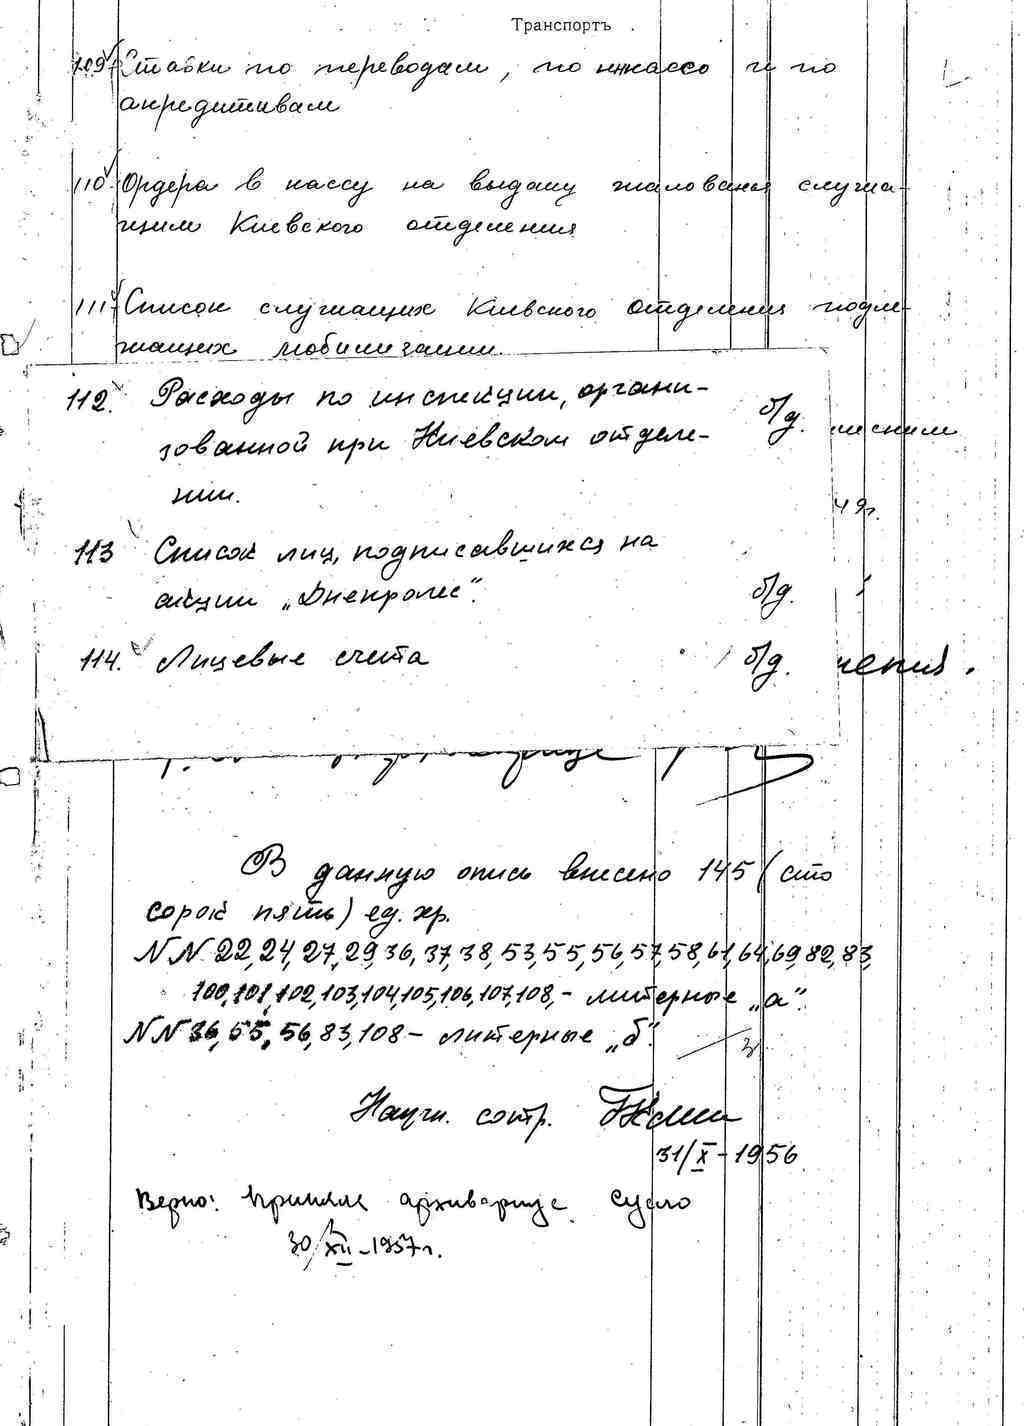 Транспортъ
109 Ставки по переводам, по инкассо и по
акредитивам
110 Ордера в кассу на выдачу жалованья служа-
щим Киевского отделения
111 Список служащих Киевского отделения подле-
жащих мобилизации.
112. Расходы по инспекции, органи-
зованной при Киевском отделе- б/д.
нии.
49г.
113 Список лиц, подписавшихся на
акции „Днепролес“. б/д.
114. Лицевые счета б/д. чения.
В данную опись внесено 145 (сто
сорок пять) ед. хр.
NN 22, 24, 27, 29, 36, 37, 38, 53, 55, 56, 57, 58, 61, 64, 69, 82, 83,
100, 101, 102, 103, 104, 105, 106, 107, 108, - литерные „а“.
NN 36, 55, 56, 83, 108 - литерные „б“.
Научн. сотр.
31/X - 1956
Верно: Приняла архивариус Сусло
30/XII - 1957 г.